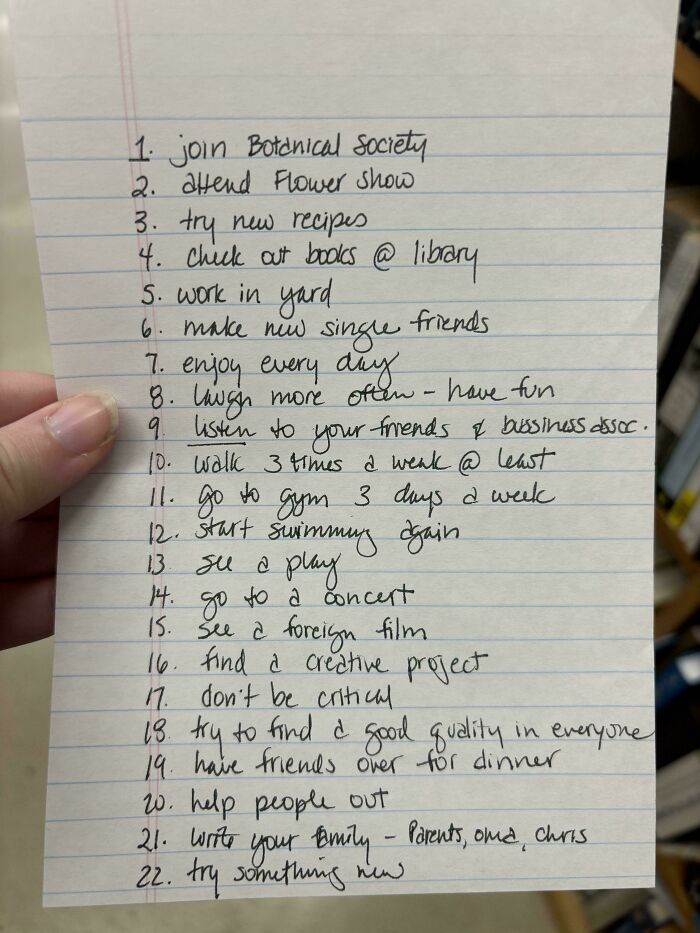 1. join Botanical Society
2. attend Flower show
3. try new recipes
4. check out books @ library
5. work in yard
6. make new single friends
7. enjoy every day
8. laugh more often - have fun
9 listen to your friends & bussiness assoc.
10. walk 3 times a weak @ least
11. go to gym 3 days a week
12. start swimming again
13. see a play
14. go to a concert
15. see a foreign film
16. find a creative project
17. don't be critical
18. try to find a good quality in everyone
19. have friends over for dinner
20. help people out
21. write your family - Parents, oma, Chris
22. try something new